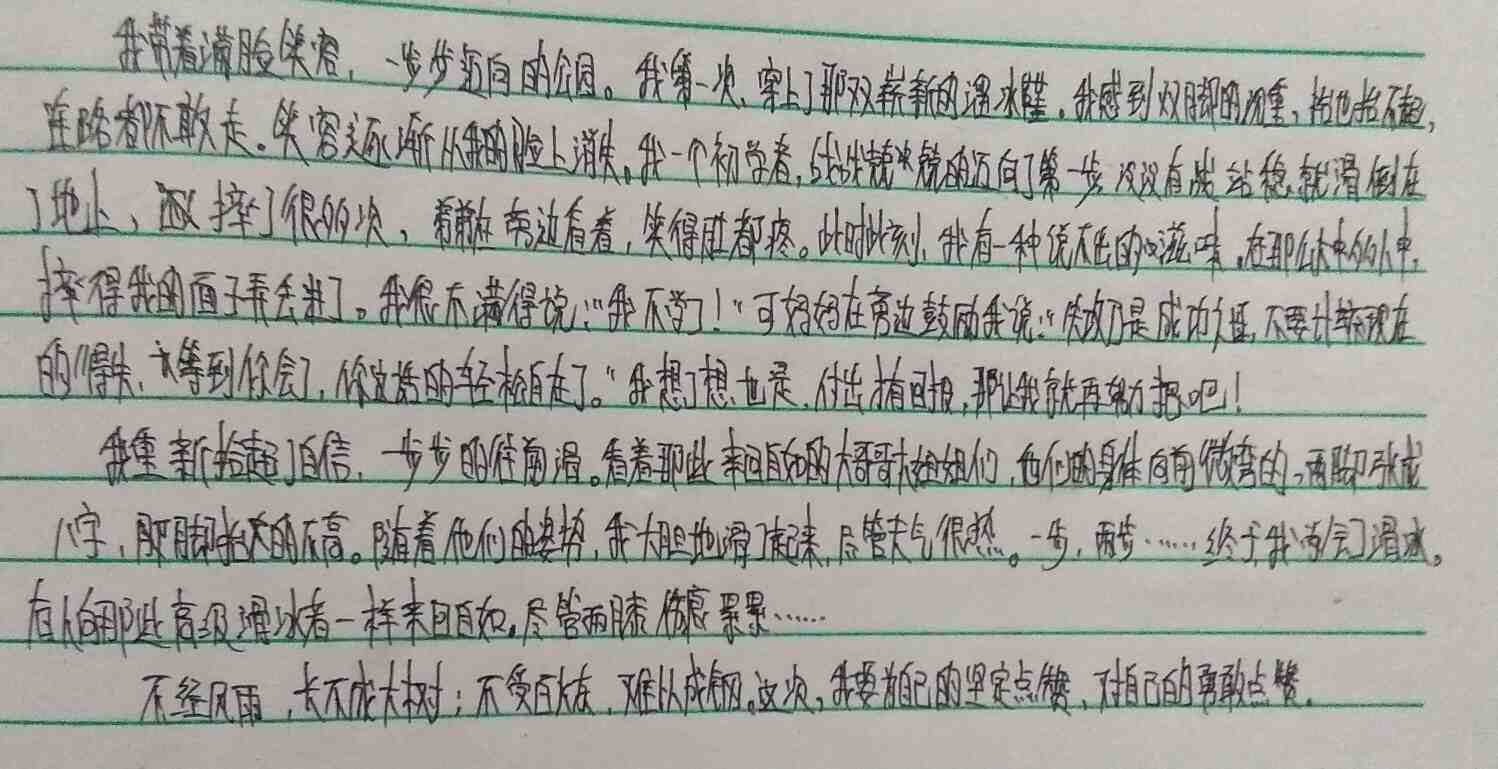 我带着满脸笑容，一步步迈向的公园。我第一次，穿上了那双崭新的溜冰鞋。我感到双脚的沉重，抬也抬不起，
连路都不敢走。笑容逐渐从我的脸上消失。我一个初学者，战战兢兢的迈向了第一步没没有战站稳，就滑倒在
了地上，摔了很多次，在旁边看着，笑得肚都疼。此时此刻，我有一种说不出的滋味。在那么多人中，
摔得我的面子弄丢光了。我很不满得说：“我不学了！”可妈妈在旁边鼓励我说：“失败乃是成功之母，不要计较现在
的得失，等到你会了，你应括的轻松自在了。”我想了想也是，付出才有回报，那让我就再努力把吧！
我重新拾起了自信，一步步的往前滑。看着那些来回自如的大哥哥大姐姐们，他们的身体向前微弯的，两脚张成
八字，脚抬的不高。随着他们的姿势，我大胆地滑了起来，尽管天气很热。一步，两步……终于我学会了滑冰。
向那些高级溜冰者一样来回自如。尽管两膝伤痕累累……
不经风雨，长不成大树；不受百炼，难以成钢。这次，我要为自己的坚定点赞，对自己的勇敢点赞。